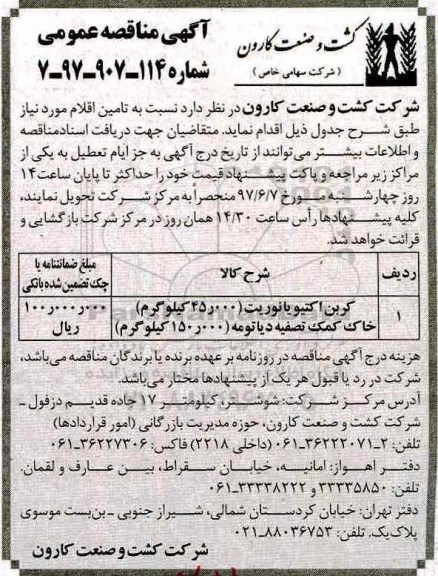 آگهی مناقصه عمومی
شماره ۱۱۴-۹۰۷-۹۷-۷
کشت و صنعت کارون
(شرکت سهامی خاص)
شرکت کشت و صنعت کارون در نظر دارد نسبت به تامین اقلام مورد نیاز
طبق شرح جدول ذیل اقدام نماید. متقاضیان جهت دریافت اسنادمناقصه
و اطلاعات بیشتر می‌توانند از تاریخ درج آگهی به جز ایام تعطیل به یکی از
مراکز زیر مراجعه و پاکت پیشنهاد قیمت خود را حداکثر تا پایان ساعت ۱۴
روز چهارشنبه مورخ ۹۷/۶/۷ منحصرا به مرکز شرکت تحویل نمایند،
کلیه پیشنهادها رأس ساعت ۱۴/۳۰ همان روز در مرکز شرکت بازگشایی و
قرائت خواهد شد.
ردیف شرح کالا مبلغ ضمانتنامه یا
چک تضمین شده بانکی
۱ کربن اکتیو یا نوریت (۴۵٫۰۰۰ کیلوگرم) ۱۰۰٫۰۰۰٫۰۰۰
خاک کمک تصفیه دیاتومه (۱۵۰٫۰۰۰ کیلوگرم) ریال
هزینه درج آگهی مناقصه در روزنامه بر عهده برنده یا برندگان مناقصه می‌باشد،
شرکت در رد یا قبول هر یک از پیشنهادها مختار می‌باشد.
آدرس مرکز شرکت: شوشتر، کیلومتر ۱۷ جاده قدیم دزفول -
شرکت کشت و صنعت کارون، حوزه مدیریت بازرگانی (امور قراردادها)
تلفن: ۲-۳۶۲۲۲۰۷۱-۰۶۱ (داخلی ۲۲۱۸) فاکس: ۳۶۲۲۷۳۰۶-۰۶۱
دفتر اهواز: امانیه، خیابان سقراط، بین عارف و لقمان
تلفن: ۳۳۳۳۵۸۵۰ و ۳۳۳۳۸۲۲۲-۰۶۱
دفتر تهران: خیابان کردستان شمالی، شیراز جنوبی - بن‌بست موسوی
پلاک یک. تلفن: ۸۸۰۳۶۷۵۳-۰۲۱
شرکت کشت و صنعت کارون